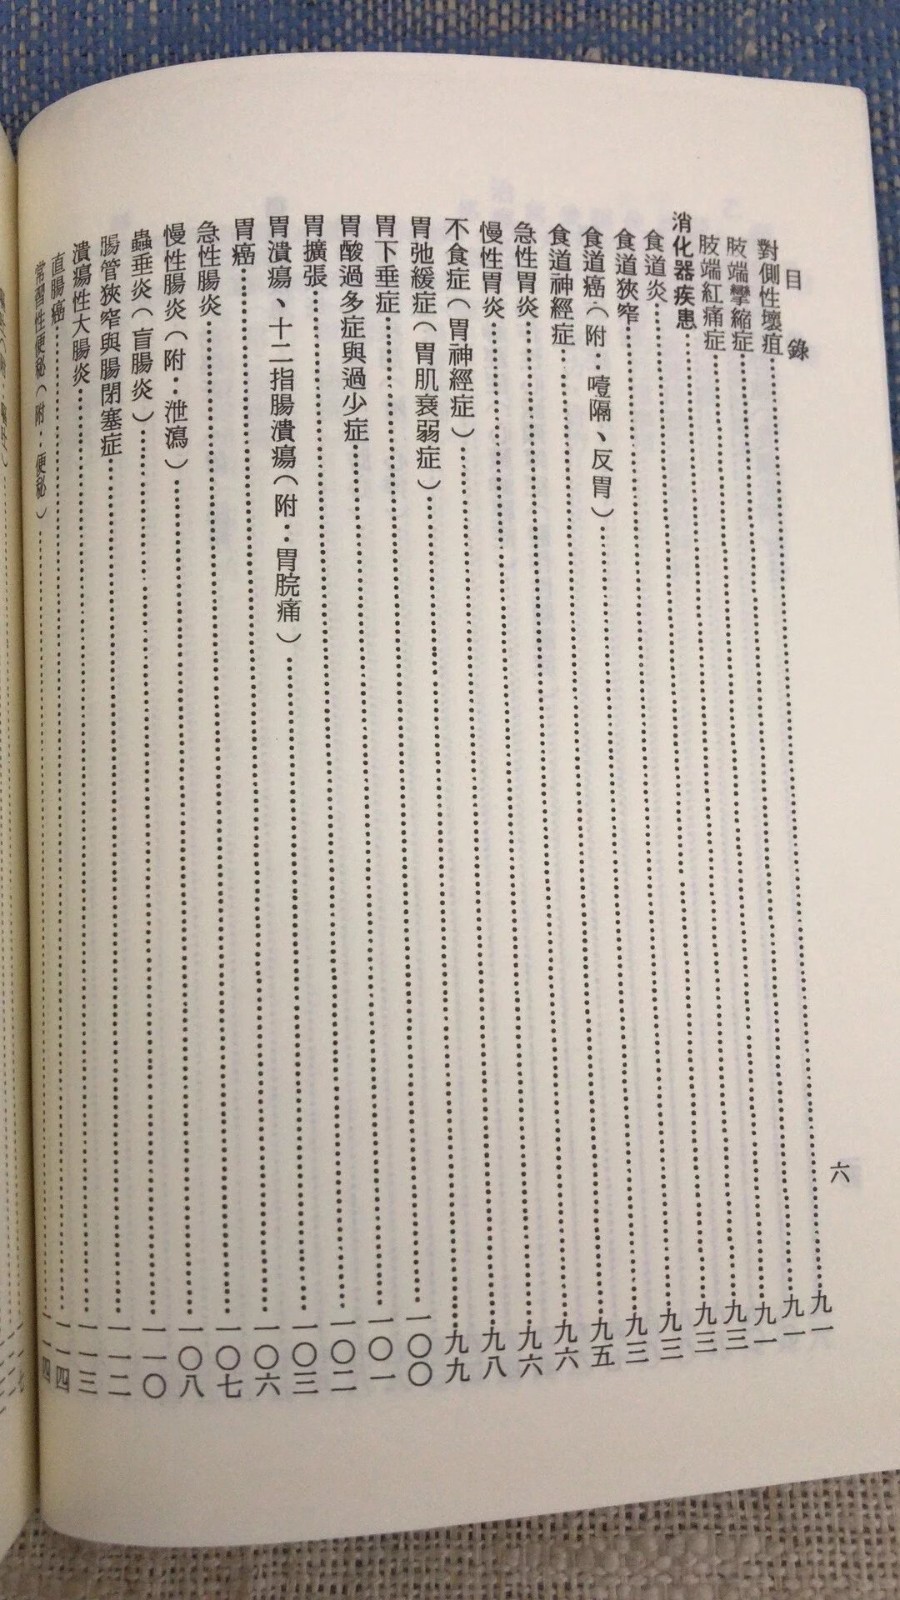 目錄
六
對側性壞疽……九一
肢端攣縮症……九一
肢端紅痛症……九一
消化器疾患……九三
食道炎……九三
食道狹窄……九三
食道癌（附：噎隔、反胃）……九三
食道神經症……九五
急性胃炎……九六
慢性胃炎……九六
不食症（胃神經症）……九八
胃弛緩症（胃肌衰弱症）……九九
胃下垂症……一〇〇
胃酸過多症與過少症……一〇一
胃擴張……一〇二
胃潰瘍、十二指腸潰瘍（附：胃脘痛）……一〇三
胃癌……一〇六
急性腸炎……一〇七
慢性腸炎（附：泄瀉）……一〇八
蟲垂炎（盲腸炎）……一一〇
腸管狹窄與腸閉塞症……一一二
潰瘍性大腸炎……一一三
直腸癌……一一四
常習性便秘（附：便秘）……一一四